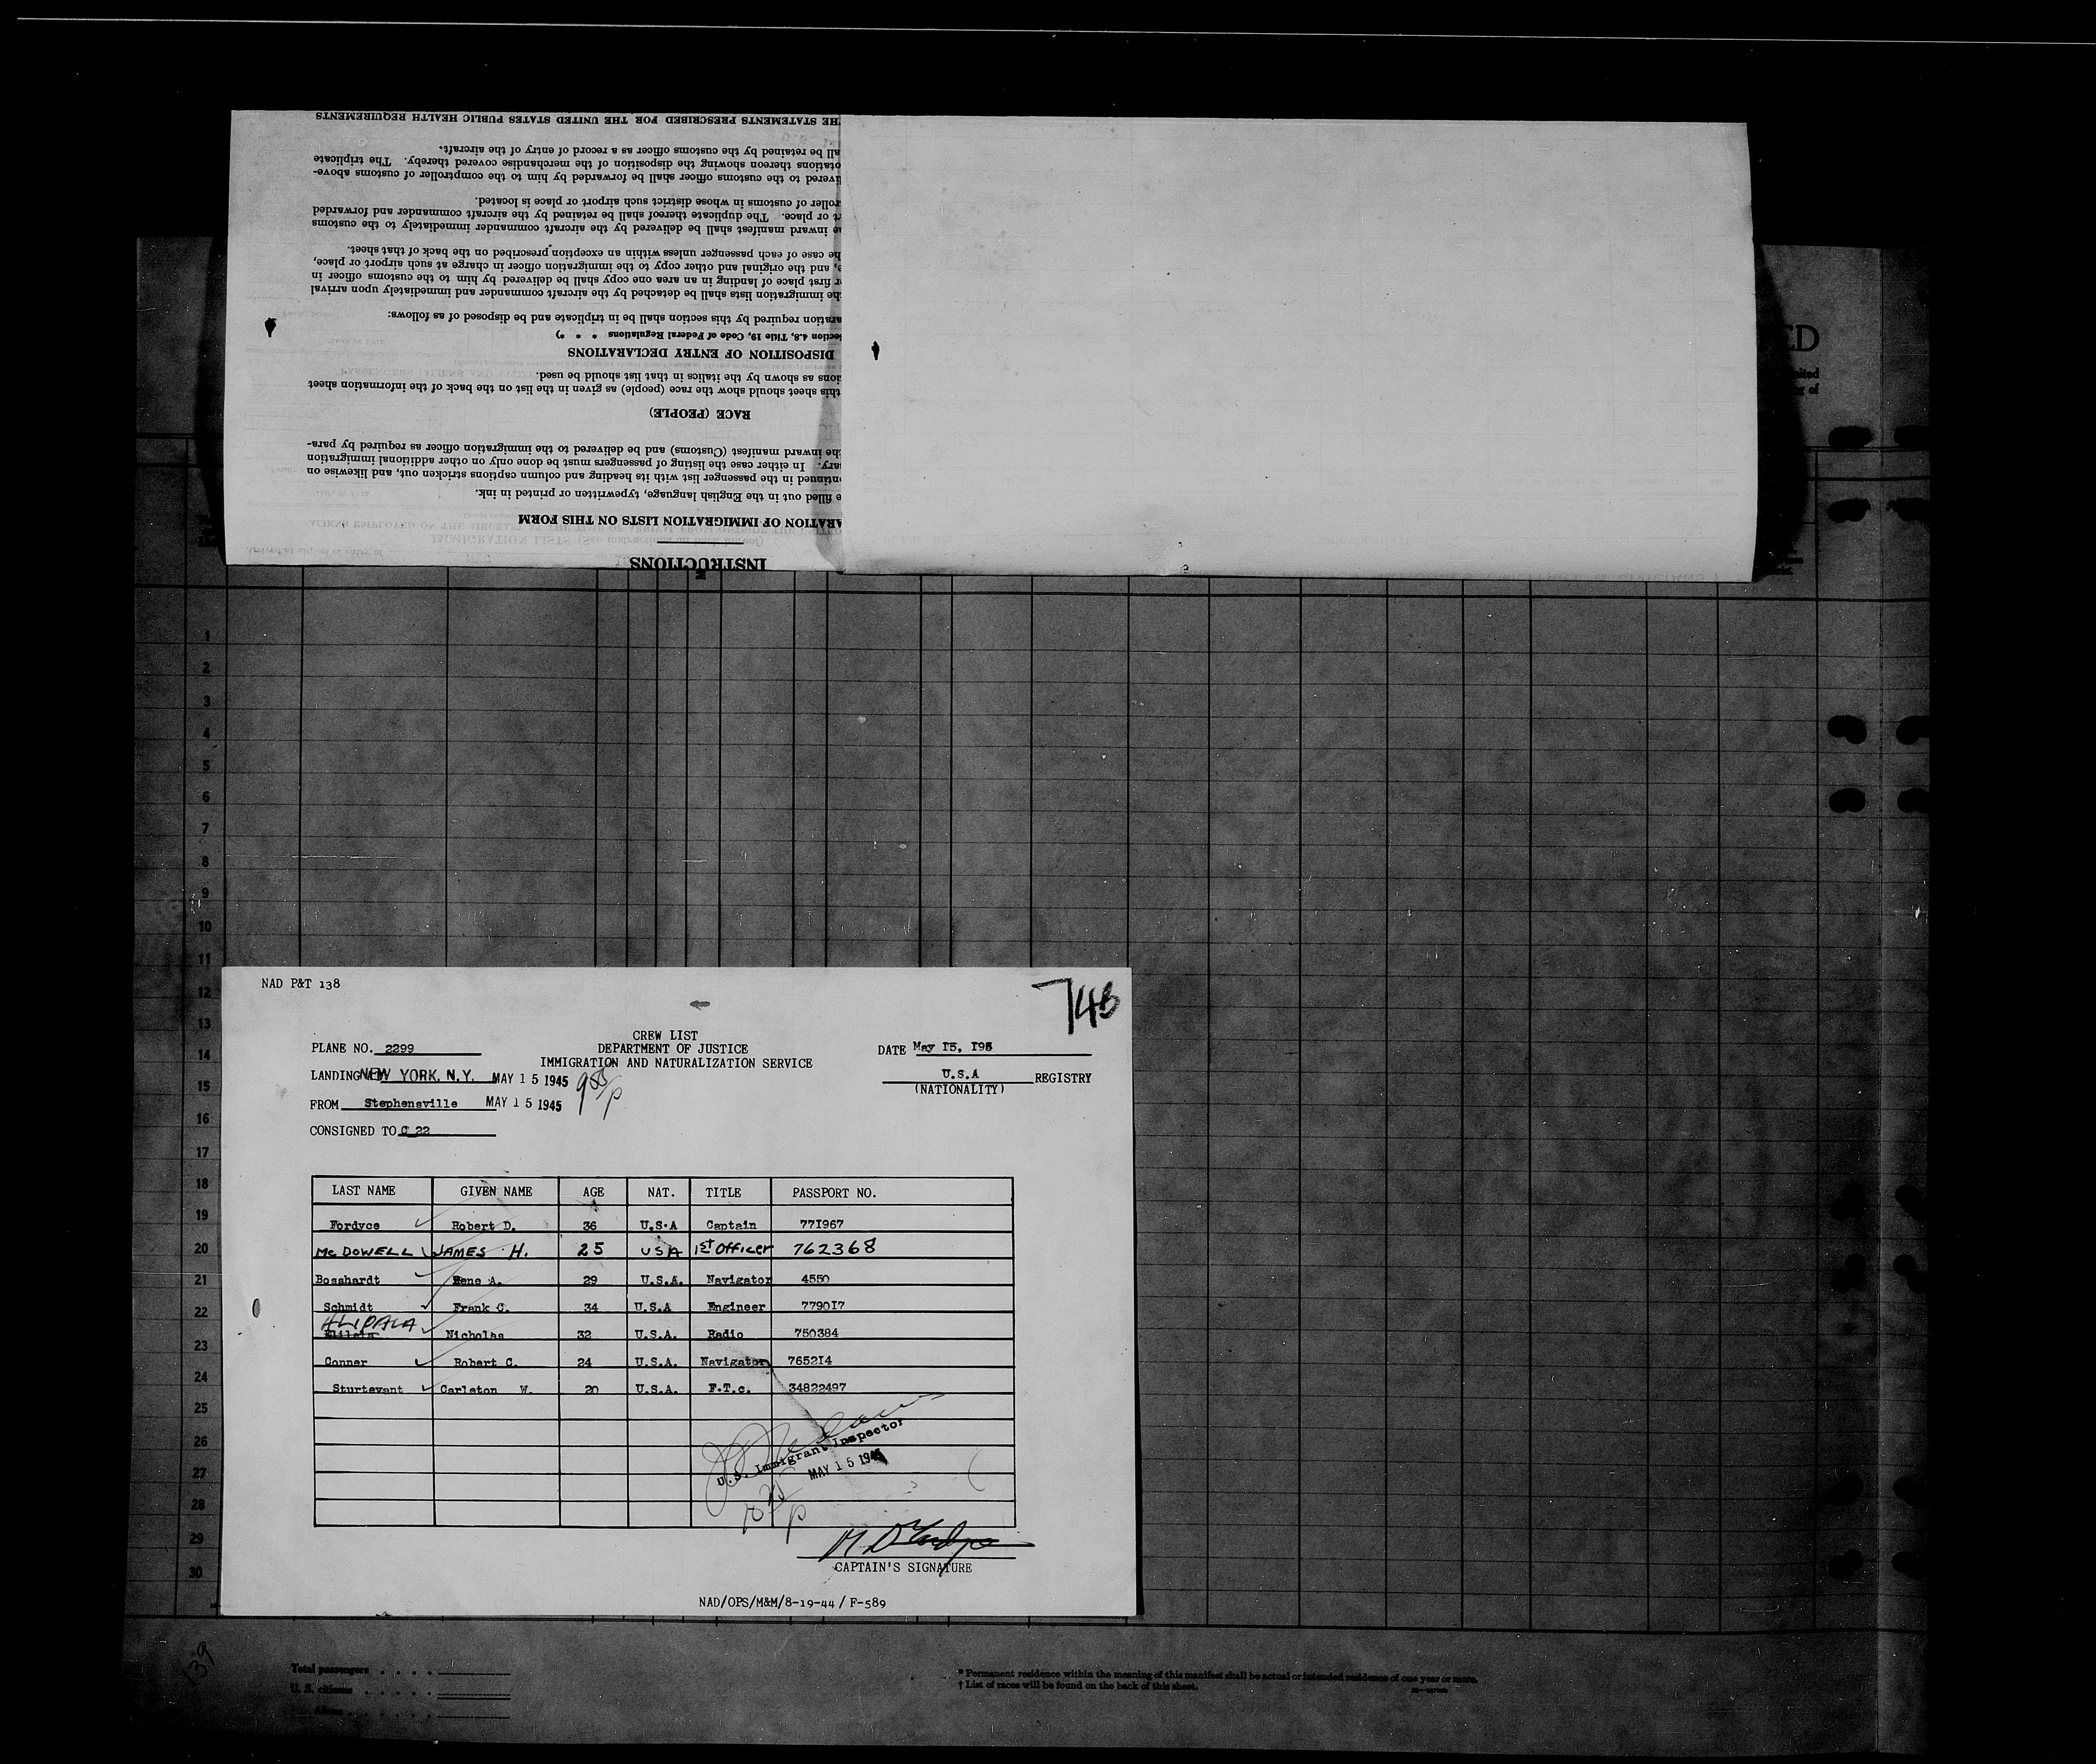 THE STATEMENTS PRESCRIBED FOR THE UNITED STATES PUBLIC HEALTH REQUIREMENTS
all be retained by the customs officer as a record of entry of the aircraft.
otations thereon showing the disposition of the merchandise covered thereby. The triplicate
livered to the customs officer shall be forwarded by him to the comptroller of customs above-
roller of customs in whose district such airport or place is located.
rt or place. The duplicate thereof shall be retained by the aircraft commander and forwarded
he inward manifest shall be delivered by the aircraft commander immediately to the customs
he case of each passenger unless within an exception prescribed on the back of that sheet.
e, and the original and other copy to the immigration officer in charge at such airport or place,
r first place of landing in an area one copy shall be delivered by him to the customs officer in
the immigration lists shall be detached by the aircraft commander and immediately upon arrival
aration required by this section shall be in triplicate and be disposed of as follows:
Section 4.8, Title 19, Code of Federal Regulations * * *)
DISPOSITION OF ENTRY DECLARATIONS
ions as shown by the italics in that list should be used.
this sheet should show the race (people) as given in the list on the back of the information sheet
RACE (PEOPLE)
the inward manifest (Customs) and be delivered to the immigration officer as required by para-
ary. In either case the listing of passengers must be done only on other additional immigration
ntinued in the passenger list with its heading and column captions stricken out, and likewise on
e filled out in the English language, typewritten or printed in ink.
ARATION OF IMMIGRATION LISTS ON THIS FORM
INSTRUCTIONS
ED
1
2
3
4
5
6
7
8
9
10
11
12
13
14
15
16
17
18
19
20
21
22
23
24
25
26
27
28
29
30
NAD P&T 138
745
CREW LIST
PLANE NO. 2299 DEPARTMENT OF JUSTICE DATE May I5, I95
IMMIGRATION AND NATURALIZATION SERVICE
LANDING NEW YORK, N.Y. MAY 15 1945 U.S.A REGISTRY
(NATIONALITY)
FROM Stephensville MAY 15 1945
CONSIGNED TO C 22
LAST NAME GIVEN NAME AGE NAT. TITLE PASSPORT NO.
Fordyce Robert D. 36 U.S.A Captain 77I967
McDOWELL JAMES H. 25 USA 1ST OFFICER 762368
Bosshardt Rene A. 29 U.S.A. Navigator 4550
Schmidt Frank C. 34 U.S.A Engineer 7790I7
Nicholas 32 U.S.A. Radio 750384
Conner Robert C. 24 U.S.A. Navigator 7652I4
Sturtevant Carleton W. 20 U.S.A. F.T.c. 34822497
U.S. Immigrant Inspector
MAY 15 194
CAPTAIN'S SIGNATURE
NAD/OPS/M&M/8-19-44 / F-589
139
Total passengers
U. S. citizens
Aliens
* Permanent residence within the meaning of this manifest shall be actual or intended residence of one year or more.
† List of races will be found on the back of this sheet.